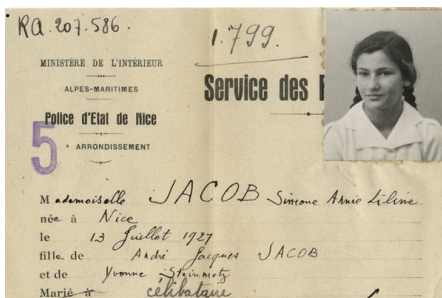 RA. 207.586.
1.799.
MINISTÈRE DE L'INTÉRIEUR
ALPES-MARITIMES
Police d'Etat de Nice
5e ARRONDISSEMENT
Service des
Mademoiselle JACOB Simone Annie Liline
née à Nice
le 13 Juillet 1927
fille de André Jacques JACOB
et de Yvonne Steinmetz
Marié à célibataire